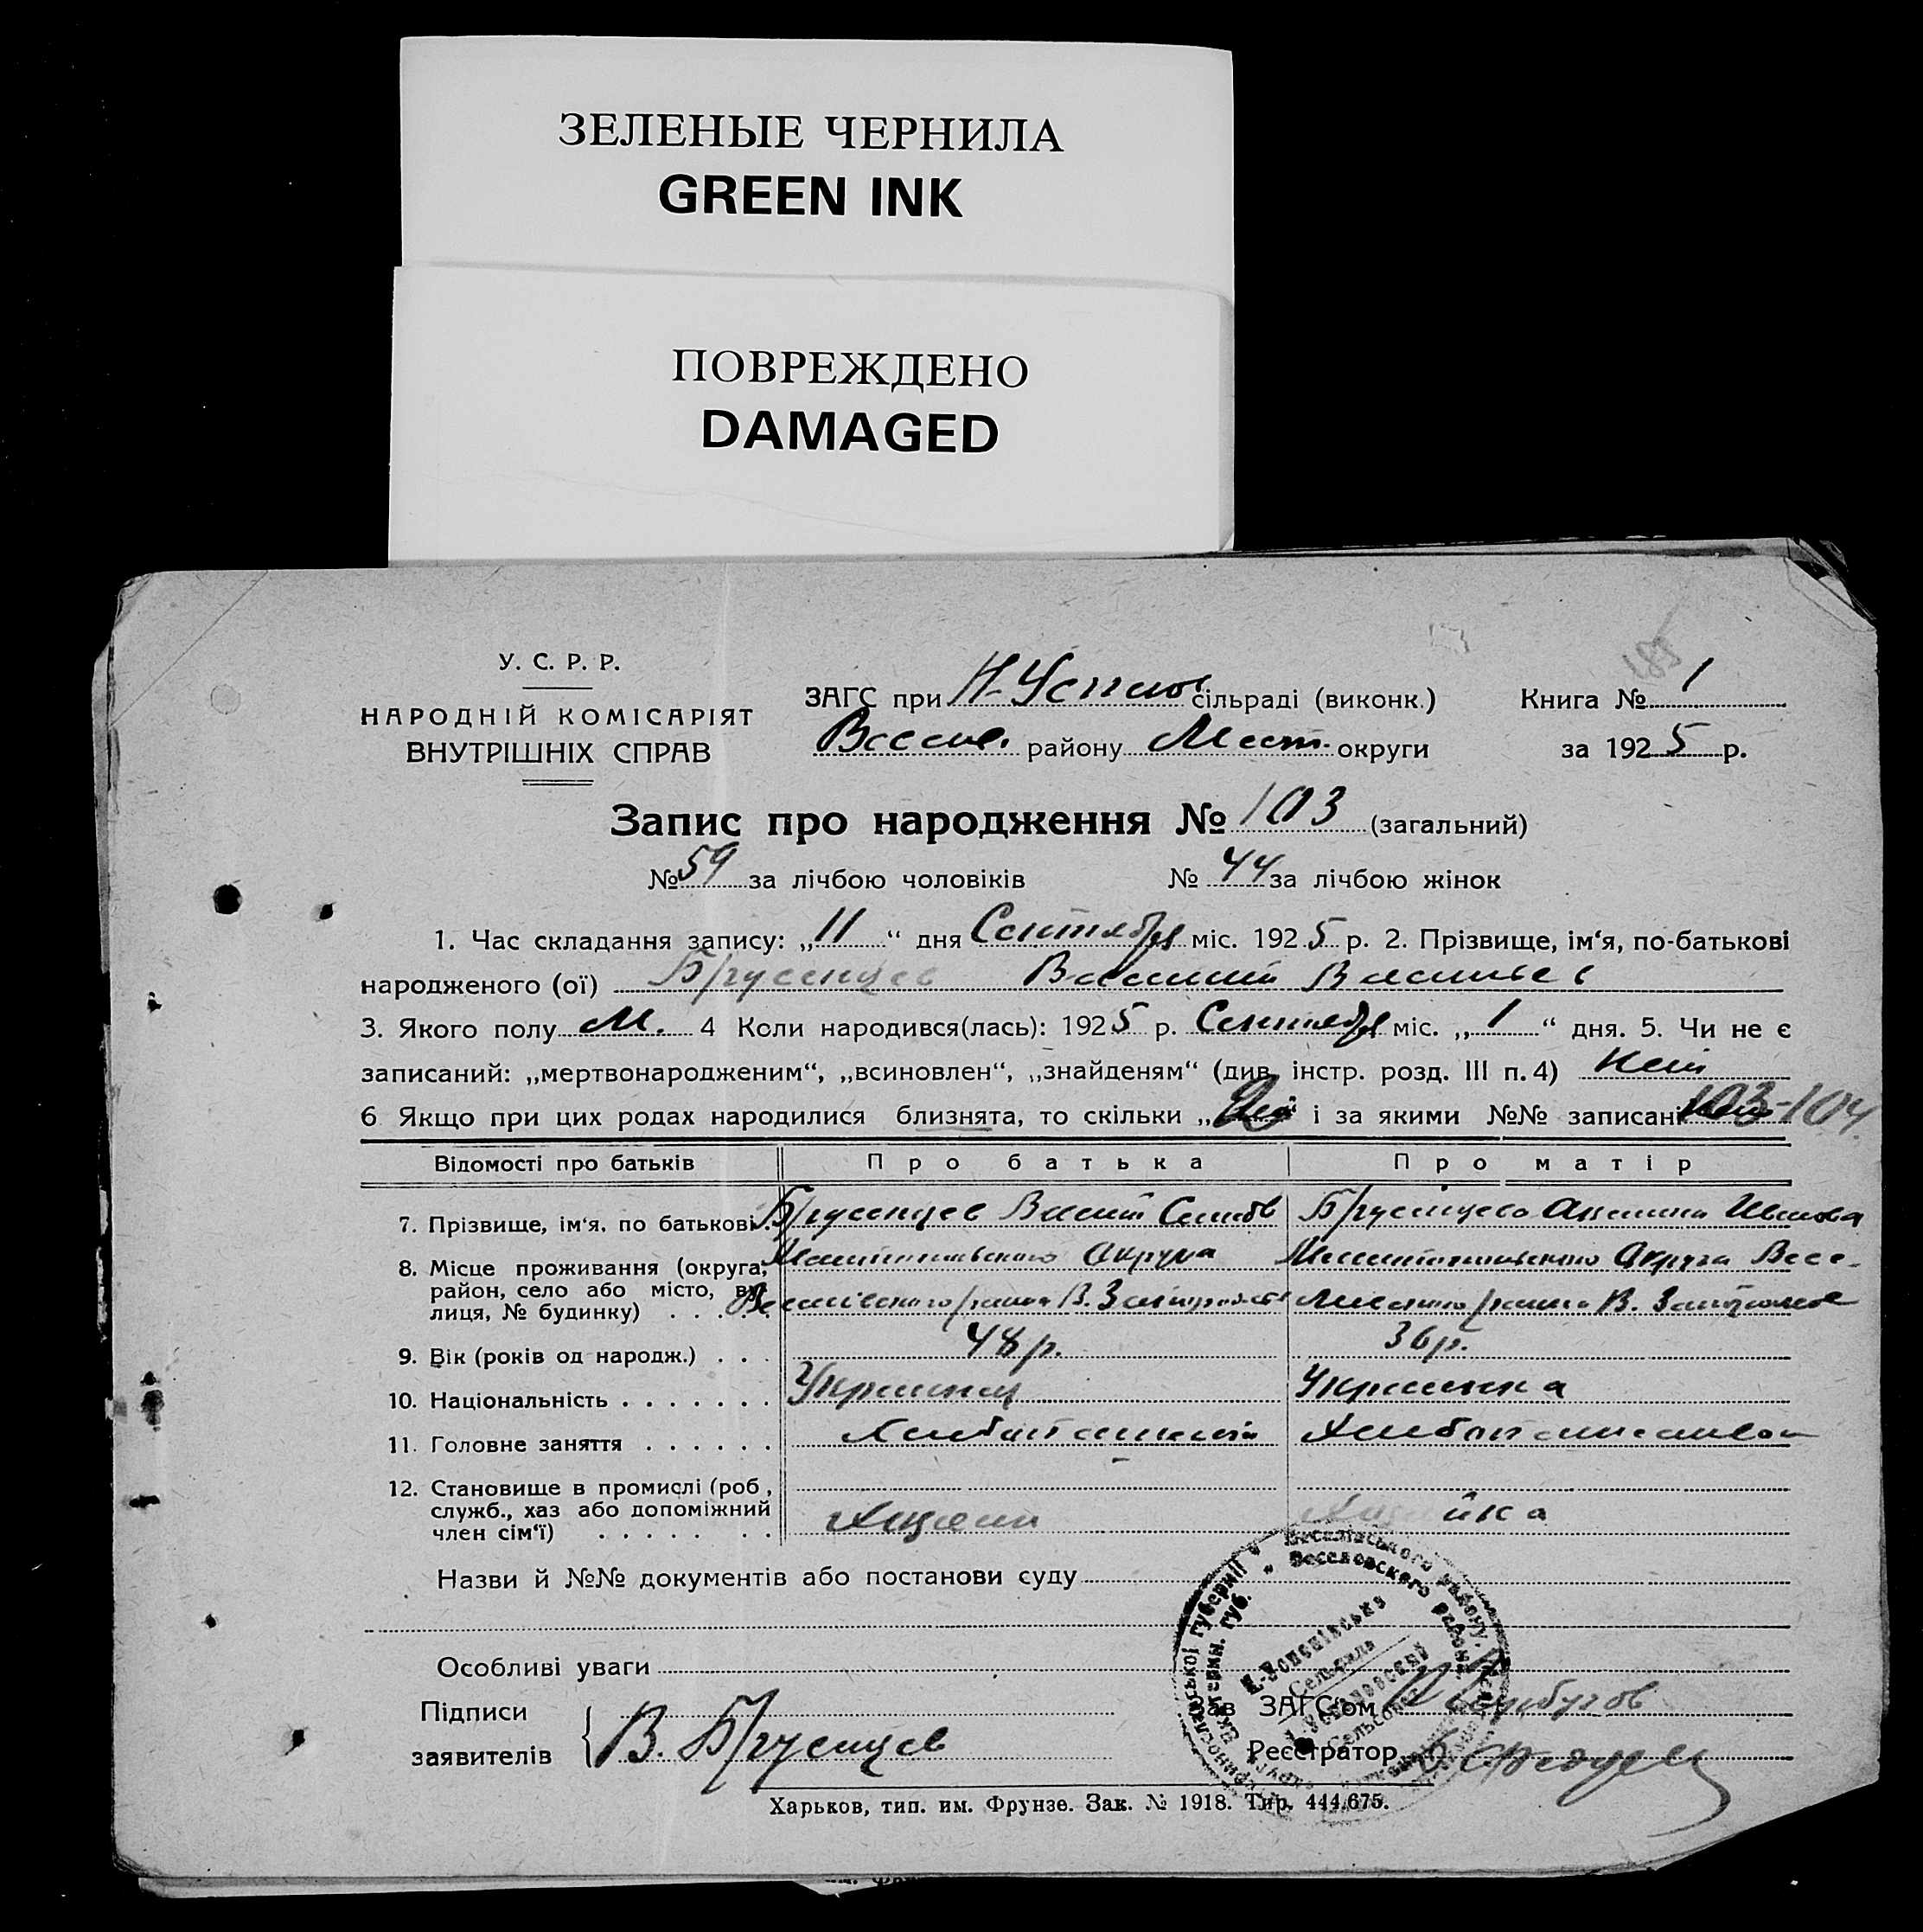 ЗЕЛЕНЫЕ ЧЕРНИЛА
GREEN INK
ПОВРЕЖДЕНО
DAMAGED
У. С. Р. Р.
НАРОДНІЙ КОМІСАРІЯТ
ВНУТРІШНІХ СПРАВ
ЗАГС при Н-Успен сільраді (виконк.) Книга № 1
Весел. району Мелит. округи за 1925 р.
Запис про народження № 103 (загальний)
№ 59 за лічбою чоловіків № 44 за лічбою жінок
1. Час складання запису: „11“ дня Сентября міс. 1925 р. 2. Прізвище, ім‘я, по-батькові
народженого (ої) Брусенцев Василий Васильев
3. Якого полу М. 4 Коли народився(лась): 1925 р. Сентября міс. „1“ дня. 5. Чи не є
записаний: „мертвонародженим“, „всиновлен“, „знайденям“ (див. інстр. розд. III п. 4) нет
6 Якщо при цих родах народилися близнята, то скільки „ і за якими №№ записані 103-104.
Відомості про батьків Про батька Про матір
7. Прізвище, ім‘я, по батькові. Брусенцев Василий Брусенцева Иванова
8. Місце проживання (округа, Мелитопольского Округа Мелитопольского Округа Весе-
район, село або місто, ву-
лиця, № будинку) . . . . . Веселівского района В. ловского района В.
9. Вік (років од народж.) . . . 48 р. 36 р.
10. Національність . . . . . . . Украинец Украинка
11. Головне заняття . . . . . . Хлебопашеский
12. Становище в промислі (роб,
служб., хаз або допоміжний
член сім‘ї) . . . . . . . Хазяин Хазяйка
Назви й №№ документів або постанови суду
Особливі уваги
Підписи Зав ЗАГС‘ом
заявителів В. Брусенцев Реєстратор
Веселівського району,
Веселовского района
Сельсовет
Харьков, тип. им. Фрунзе. Зак. № 1918. Тир. 444.675.